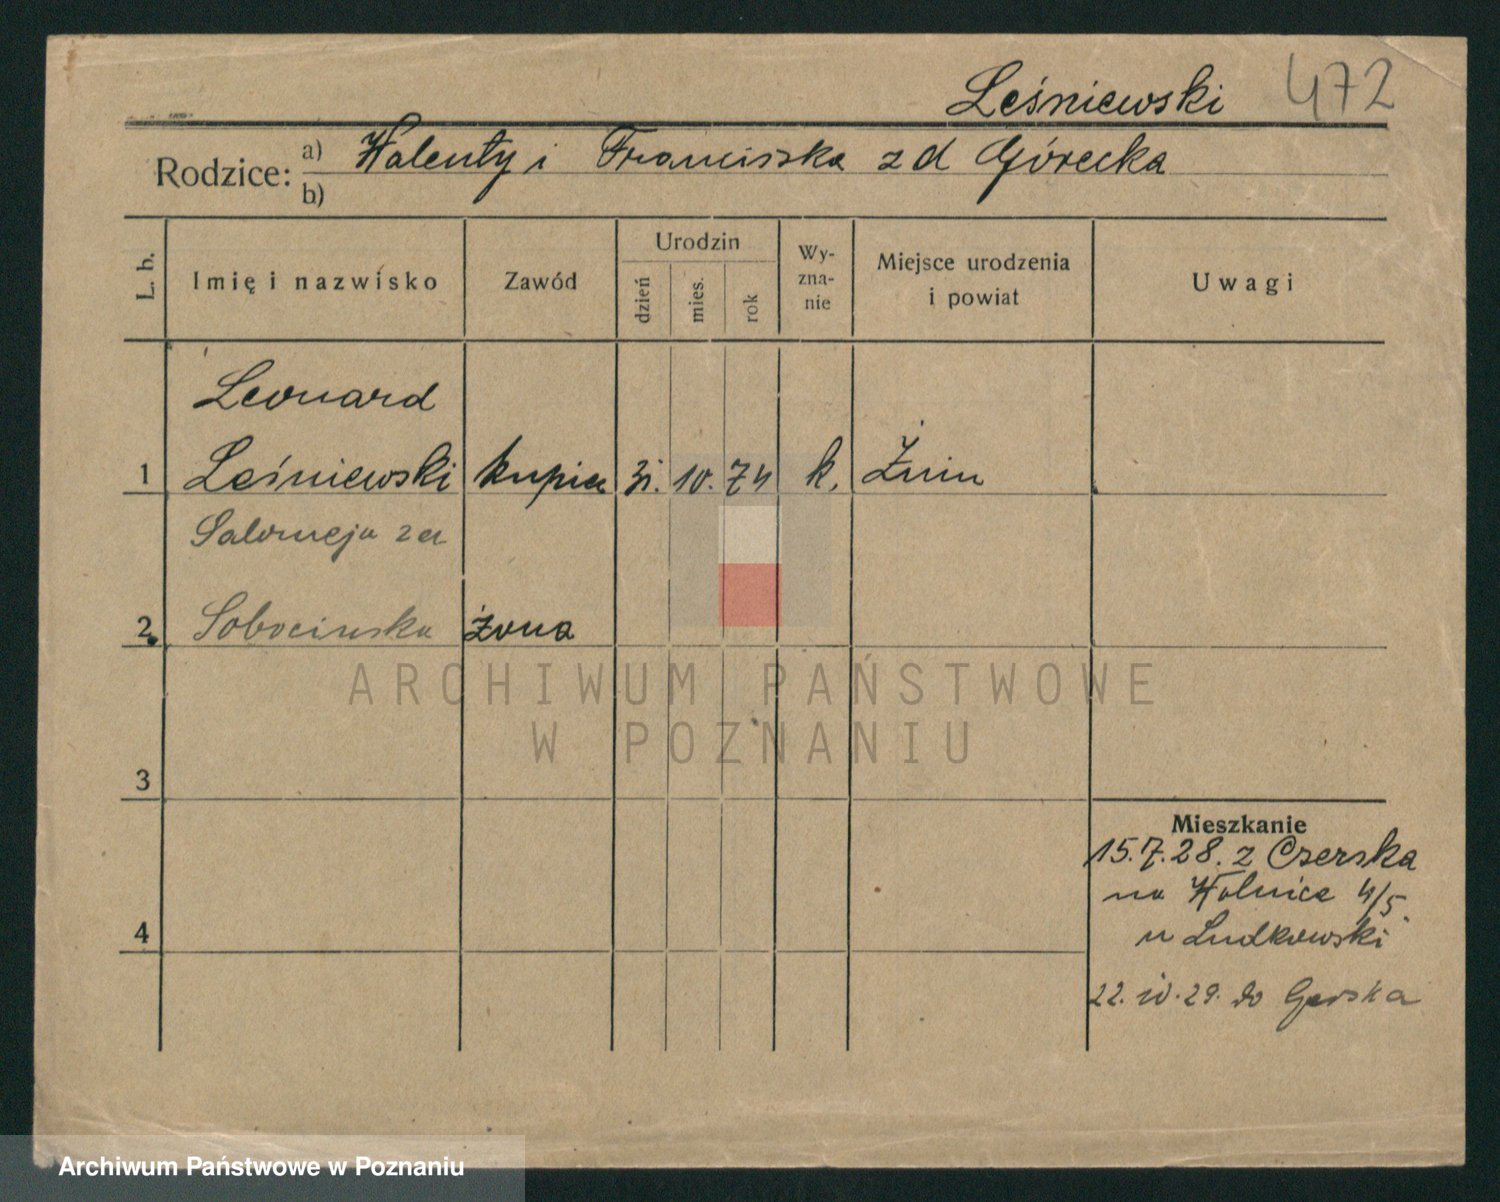 Leśniewski 472
Rodzice: a) Walenty i Franciszka z d Górecka
b)
L. b. Imię i nazwisko Zawód Urodzin dzień mies. rok Wy-zna-nie Miejsce urodzenia i powiat Uwagi
Leonard
1 Leśniewski kupiec 31. 10. 74 k. Żnin
Salomeja z d
2 Sobocińska żona
ARCHIWUM PAŃSTWOWE
W POZNANIU
3
Mieszkanie
15.7.28. z Czerska
na Wolnica 4/5.
u Ludkowski
4
22. 10. 29. do
Archiwum Państwowe w Poznaniu